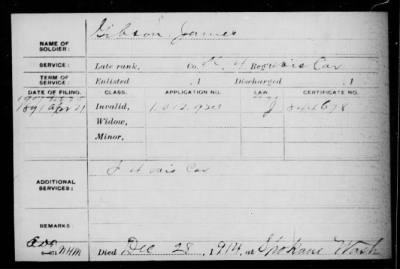 Gibson James
NAME OF SOLDIER:
SERVICE: Late rank, Co. K, 4 Reg Wis Cav
TERM OF SERVICE: Enlisted , 1 Discharged , 1
DATE OF FILING. CLASS. APPLICATION NO. LAW. CERTIFICATE NO.
1891 Apr 21 Invalid, 1.012.920 J
Widow,
Minor,
ADDITIONAL SERVICES: Wis Cav
REMARKS:
Died Dec 28, 1914, at Spokane Wash